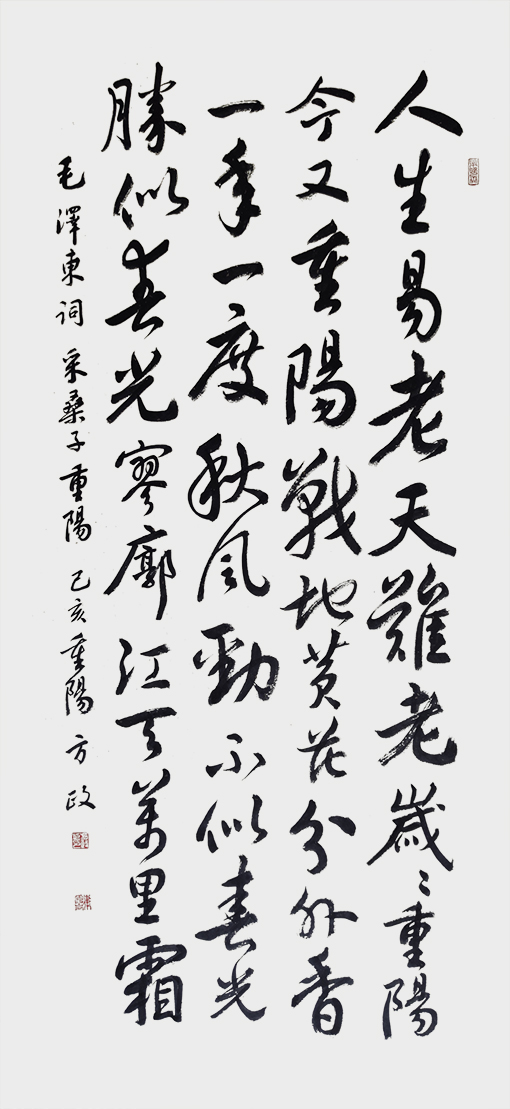 人生易老天難老歲〻重陽
今又重陽戰地黄花分外香
一年一度秋风勁不似春光
勝似春光寥廓江天萬里霜
毛澤東詞采桑子重陽 己亥重陽 方政